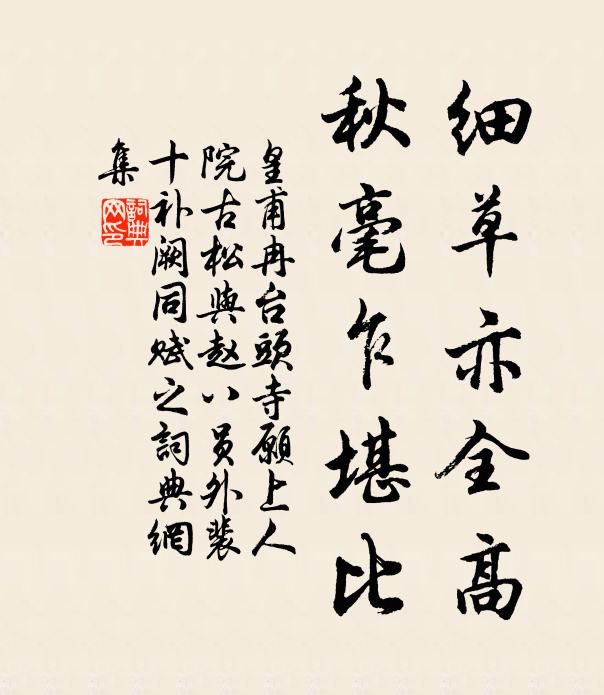 细草亦全高
秋毫乍堪比
皇甫冉台頭寺願上人
院古松與赵八員外裴
十补阙同赋之詞典網
集
詞典網印